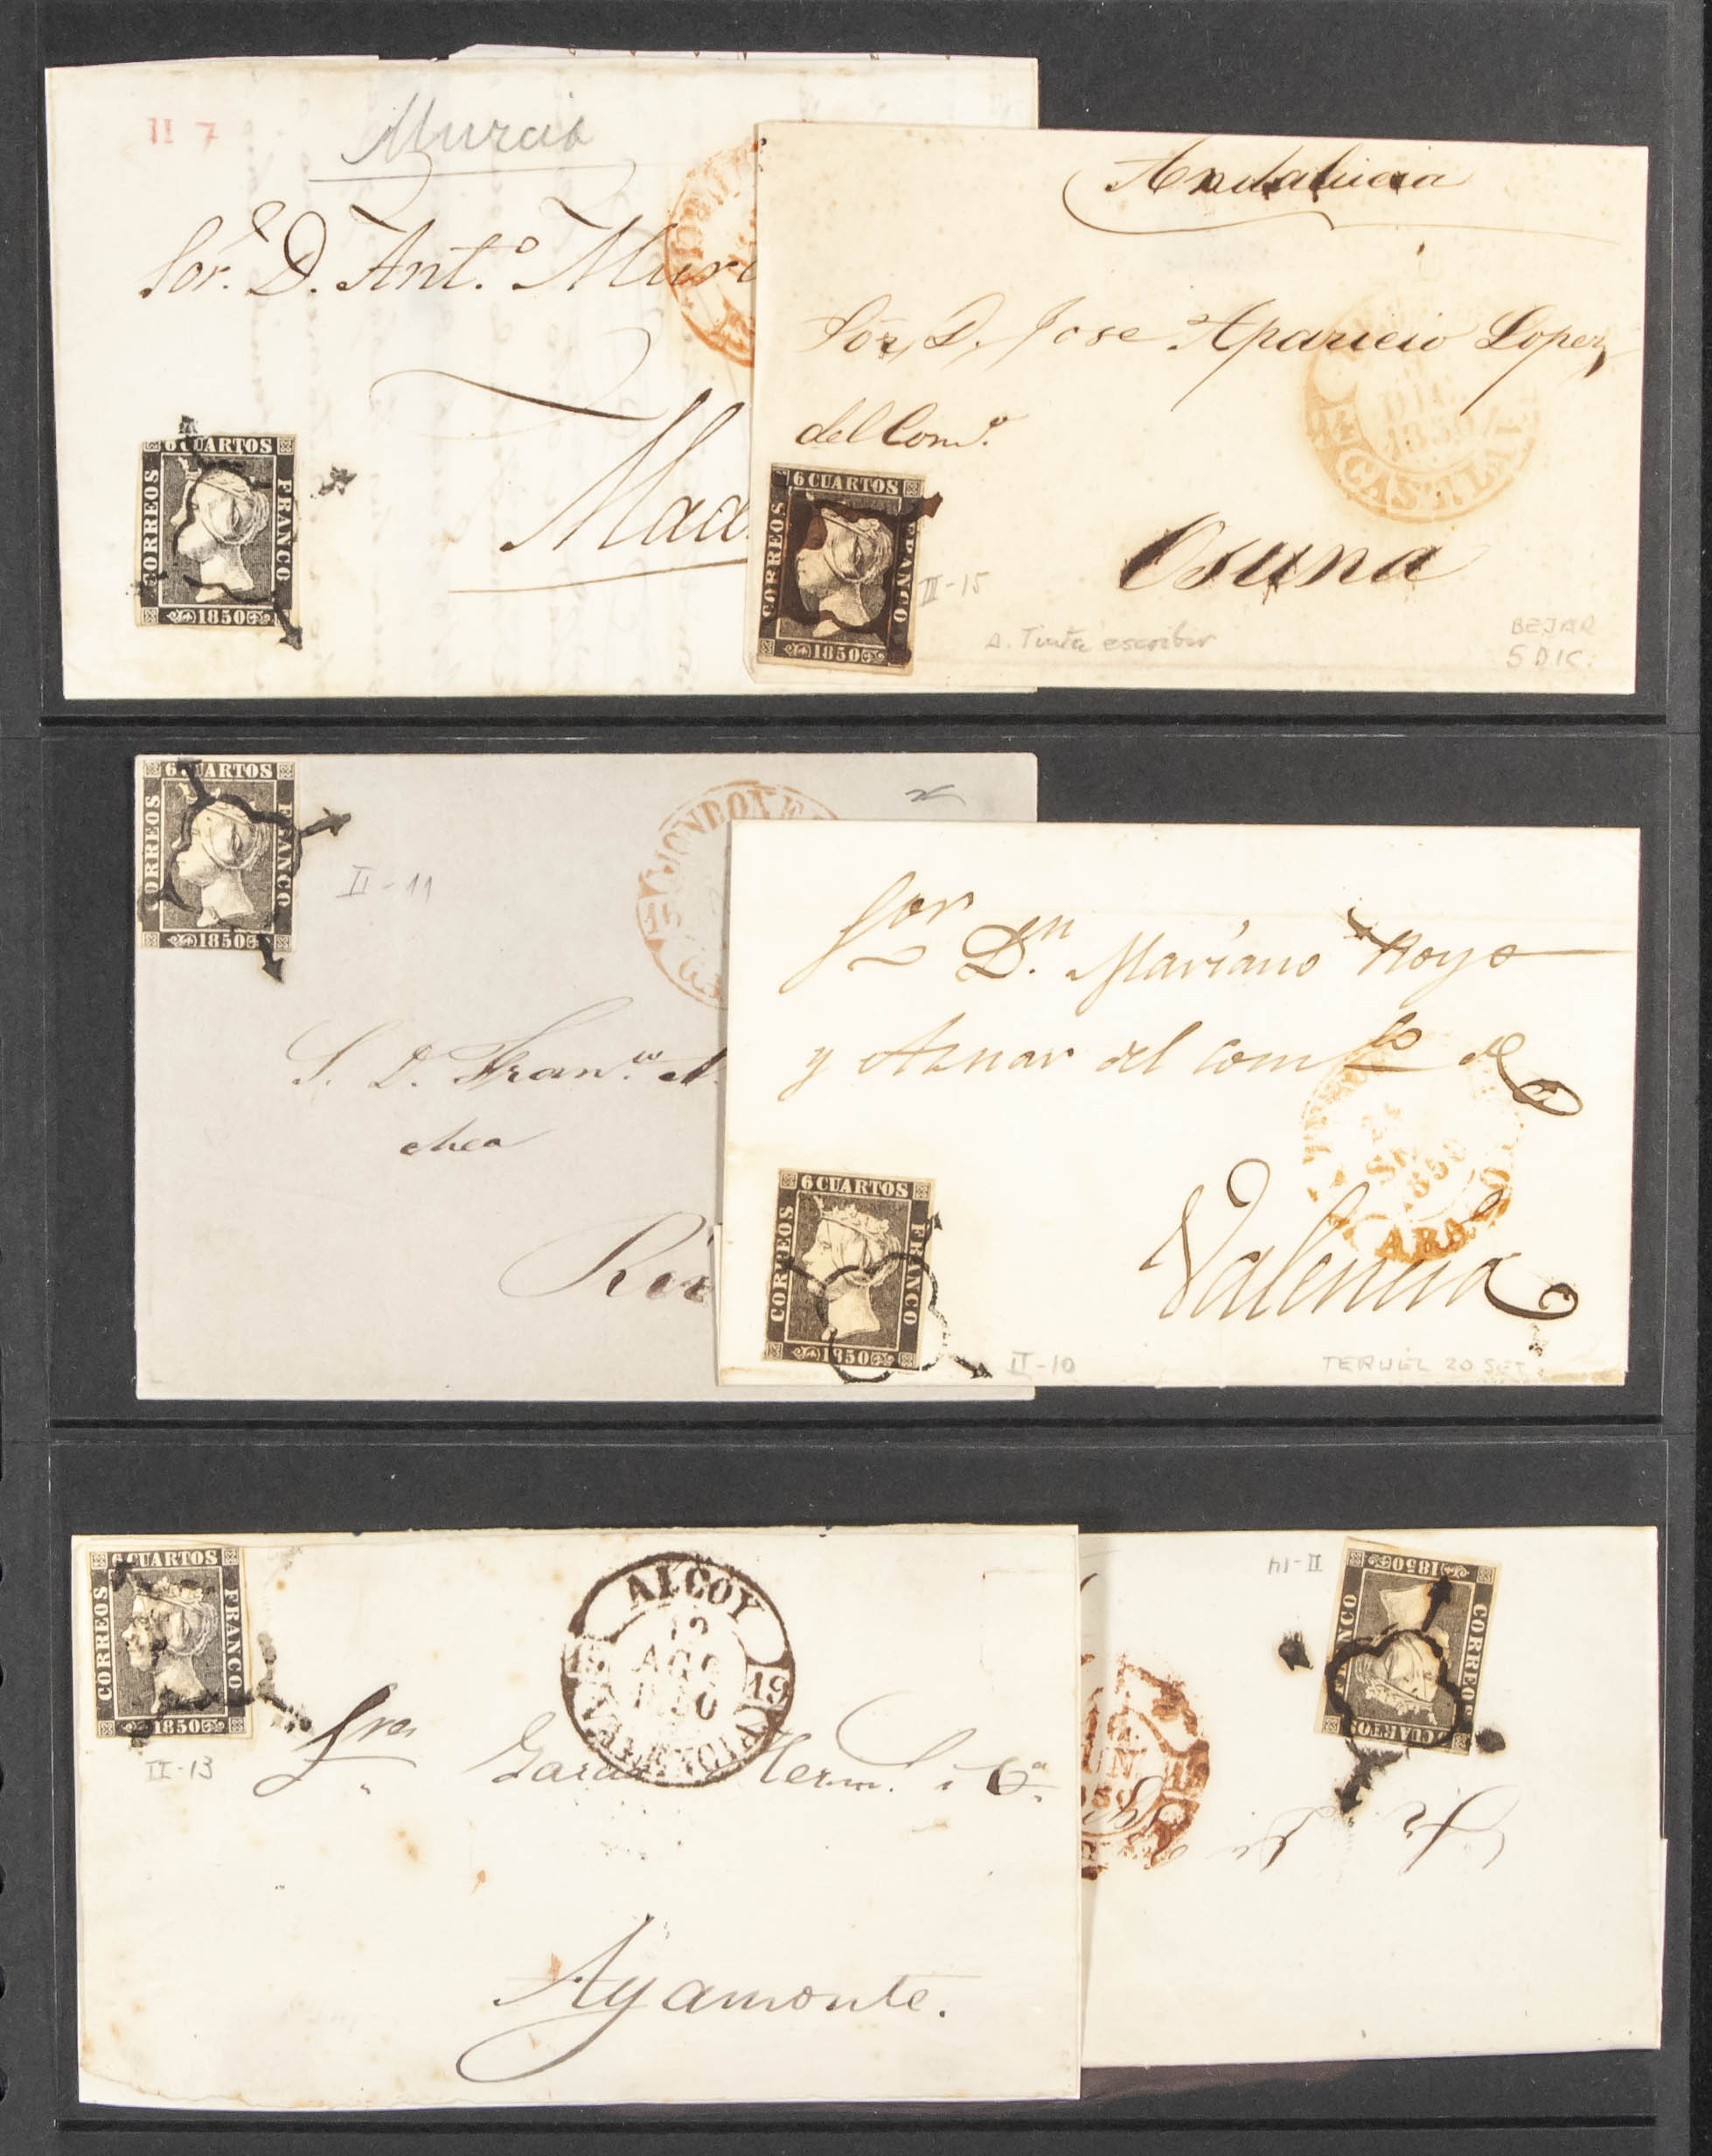 II 7
Murcia
Sor. D. Ant.º
6 CUARTOS
CORREOS
FRANCO
1850
Andalucia
Sor. D. Jose Aparicio Lopez
del Com.º
Osuna
DIC
1850
CASTLA
6 CUARTOS
CORREOS
FRANCO
1850
II-15
A. Tinta escribir
BEJAR
5 DIC.
6 CUARTOS
CORREOS
FRANCO
1850
II-11
15
S. D. Fran.co
chea
Sor
Dn. Mariano Royo
y Aznar del comco de
Valencia
6 CUARTOS
CORREOS
FRANCO
1850
II-10
TERUEL 20 SET.
6 CUARTOS
CORREOS
FRANCO
1850
II-13
ALCOY
AGO
1850
19
Sres
Garcia Herm. i Ca.
Ayamonte.
II-14
6 CUARTOS
CORREOS
FRANCO
1850